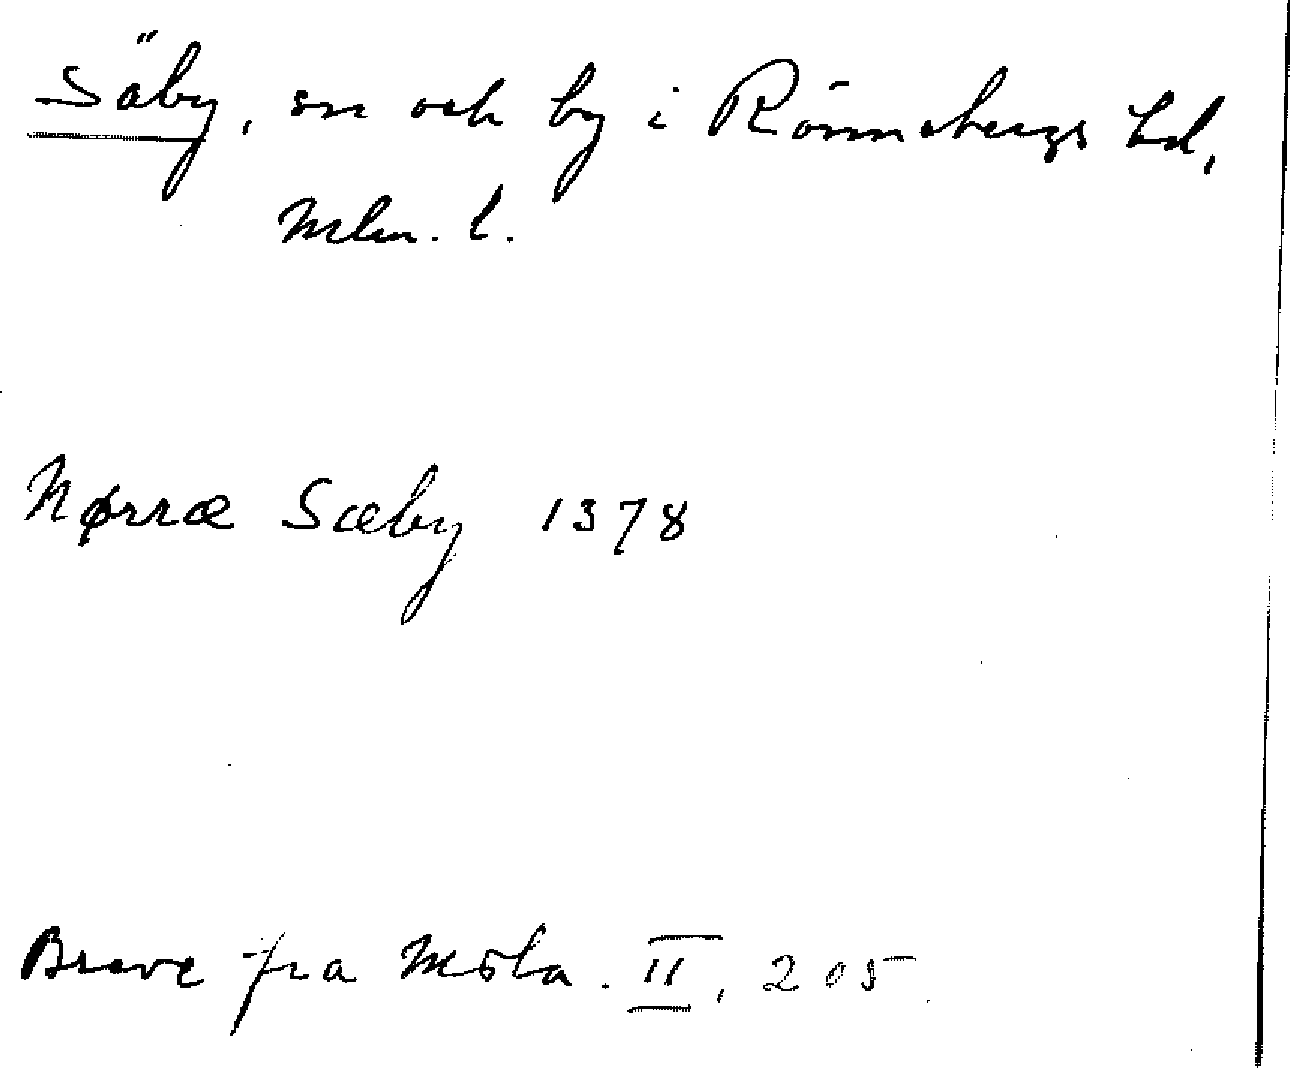 Säby, sn och by i Rönnebergs hd,
Mlm. l.
Nørræ Sæby 1378
Breve fra Midla. II, 205.